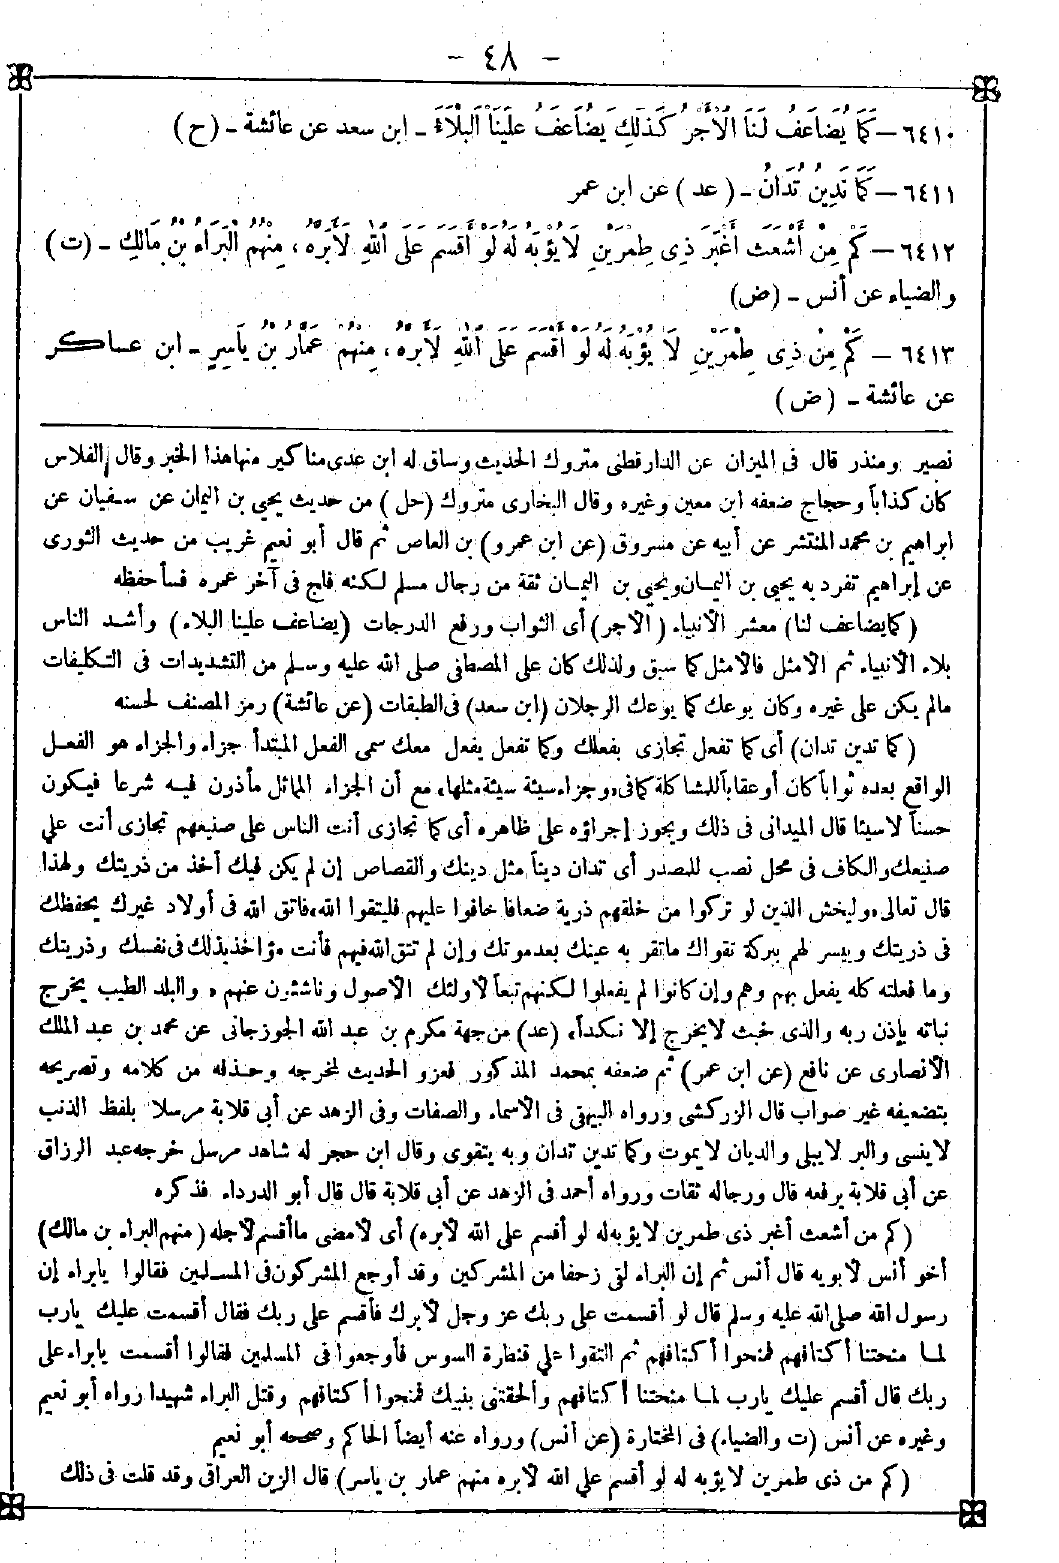 - ٤٨ -
٦٤١٠ – كَمَا يُضَاعَفُ لَنَا الْأَجْرُ كَذَلِكَ يُضَاعَفُ عَلَيْنَا الْبَلَاءُ - ابن سعد عن عائشة - (ح)
٦٤١١ – كَمَا تَدِينُ تُدَانُ - (عد) عن ابن عمر
٦٤١٢ – كَمْ مِنْ أَشْعَثَ أَغْبَرَ ذِى طِمْرَيْنِ لَا يُؤْبَهُ لَهُ لَوْ أَقْسَمَ عَلَى اللهِ لَأَبَرَّهُ، مِنْهُمُ الْبَرَاءُ بْنُ مَالِكٍ - (ت)
والضياء عن أنس - (ض)
٦٤١٣ – كَمْ مِنْ ذِى طِمْرَيْنِ لَا يُؤْبَهُ لَهُ لَوْ أَقْسَمَ عَلَى اللهِ لَأَبَرَّهُ، مِنْهُمْ عَمَّارُ بْنُ يَاسِرٍ - ابن عساكر
عن عائشة - (ض)
نصير ومنذر قال فى الميزان عن الدارقطنى متروك الحديث وساق له ابن عدى مناكير منها هذا الخبر وقال الفلاس
كان كذاباً وحجاج ضعفه ابن معين وغيره وقال البخارى متروك (حل) من حديث يحيى بن اليمان عن سفيان عن
ابراهيم بن محمد المنتشر عن أبيه عن مسروق (عن ابن عمرو) بن العاص ثم قال أبو نعيم غريب من حديث الثورى
عن إبراهيم تفرد به يحيى بن اليمان ويحيى بن اليمان ثقة من رجال مسلم لكنه فلج فى آخر عمره فسأ حفظه
(كما يضاعف لنا) معشر الأنبياء (الأجر) أى الثواب ورفع الدرجات (يضاعف علينا البلاء) وأشد الناس
بلاء الأنبياء ثم الأمثل فالأمثل كما سبق ولذلك كان على المصطفى صلى الله عليه وسلم من التشديدات فى التكليفات
مالم يكن على غيره وكان يوعك كما يوعك الرجلان (ابن سعد) فى الطبقات (عن عائشة) رمز المصنف لحسنه
(كما تدين تدان) أى كما تفعل تجازى بفعلك وكما تفعل يفعل معك سمى الفعل المبتدأ جزاء والجزاء هو الفعل
الواقع بعده ثواباً كان أو عقاباً للمشاكلة كما فى «وجزاء سيئة سيئة مثلها» مع أن الجزاء المماثل مأذون فيه شرعا فيكون
حسناً لا سيئا قال الميدانى فى ذلك ويجوز إجراؤه على ظاهره أى كما تجازى أنت الناس على صنيعهم تجازى أنت على
صنيعك والكاف فى محل نصب للمصدر أى تدان ديناً مثل دينك والقصاص إن لم يكن فيك أخذ من ذريتك ولهذا
قال تعالى «وليخش الذين لو تركوا من خلفهم ذرية ضعافا خافوا عليهم فليتقوا الله» فاتق الله فى أولاد غيرك يحفظك
فى ذريتك وييسر لهم ببركة تقواك ماتقر به عينك بعد موتك وإن لم تتق الله فيهم فأنت مؤاخذ بذلك فى نفسك وذريتك
وما فعلته كله يفعل بهم وهم وإن كانوا لم يفعلوا لكنهم تبعاً لأولئك الأصول وناشئون عنهم «والبلد الطيب يخرج
نباته بإذن ربه والذى خبث لايخرج إلا نكدا» (عد) من جهة مكرم بن عبد الله الجوزجانى عن محمد بن عبد الملك
الأنصارى عن نافع (عن ابن عمر) ثم ضعفه بمحمد المذكور فعزو الحديث لمخرجه وحذفه من كلامه وتصريحه
بتضعيفه غير صواب قال الزركشى ورواه البيهقى فى الأسماء والصفات وفى الزهد عن أبى قلابة مرسلا بلفظ الذنب
لاينسى والبر لايبلى والديان لايموت وكما تدين تدان وبه يتقوى وقال ابن حجر له شاهد مرسل خرجه عبد الرزاق
عن أبى قلابة يرفعه قال ورجاله ثقات ورواه أحمد فى الزهد عن أبى قلابة قال قال أبو الدرداء فذكره
(كم من أشعث أغبر ذى طمرين لايؤبه له لو أقسم على الله لأبره) أى لأمضى ما أقسم لأجله (منهم البراء بن مالك)
أخو أنس لأبويه قال أنس ثم إن البراء لقى زحفا من المشركين وقد أوجع المشركون فى المسلمين فقالوا يابراء إن
رسول الله صلى الله عليه وسلم قال لو أقسمت على ربك عز وجل لأبرك فأقسم على ربك فقال أقسمت عليك يارب
لما منحتنا أكتافهم فمنحوا أكتافهم ثم التقوا على قنطارة السوس فأوجعوا فى المسلمين فقالوا أقسمت يابراء على
ربك قال أقسم عليك يارب لما منحتنا أكتافهم وألحقتنى بنبيك فمنحوا أكتافهم وقتل البراء شهيدا رواه أبو نعيم
وغيره عن أنس (ت والضياء) فى المختارة (عن أنس) ورواه عنه أيضاً الحاكم وصححه أبو نعيم
(كم من ذى طمرين لايؤبه له لو أقسم على الله لأبره منهم عمار بن ياسر) قال الزين العراقى وقد قلت فى ذلك